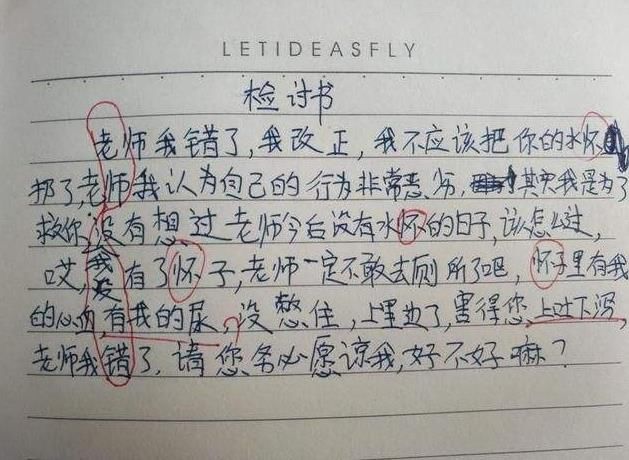 LETIDEASFLY
检讨书
老师我错了,我改正,我不应该把你的水怀
扔了,老师我认为自己的行为非常恶劣,其实我是为了
救你,没有想过老师今后没有水怀的日子,该怎么过,
哎,有了怀子,老师一定不敢去厕所了吧,怀子里有我
的心,有我的尿,没憋住,上里边了,害得您上吐下泻,
老师我错了,请您务必愿谅我,好不好嘛?